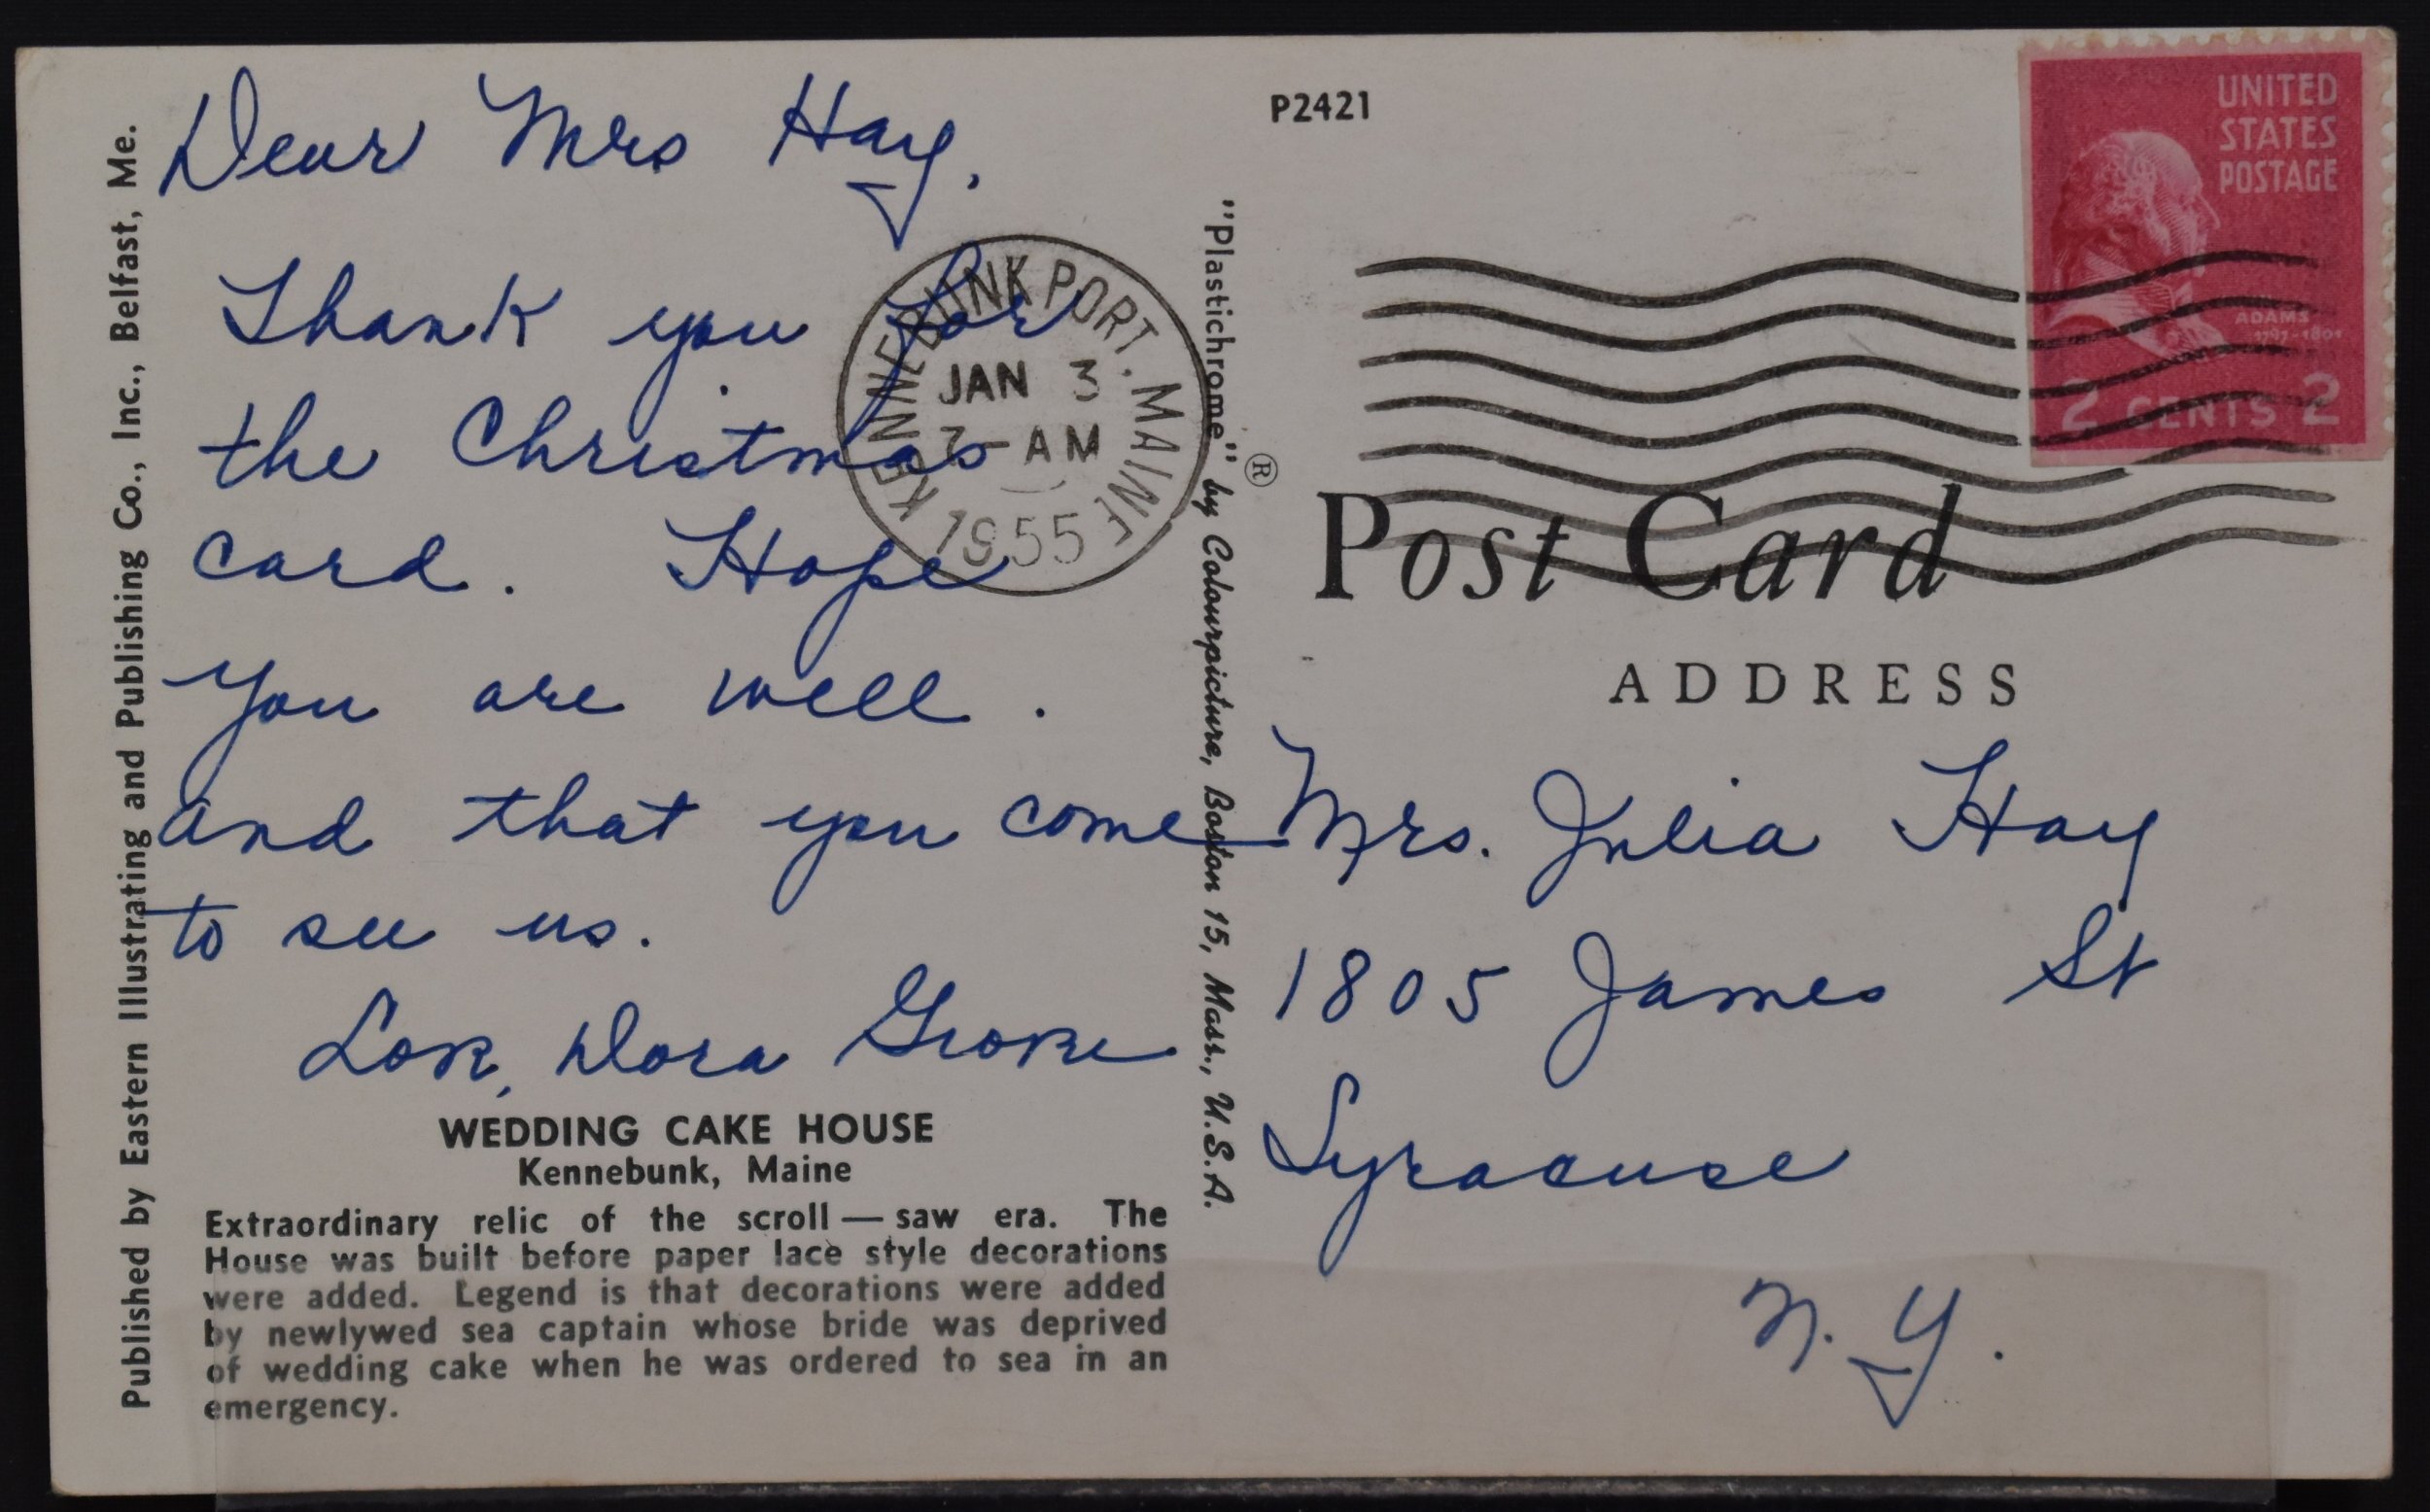 Published by Eastern Illustrating and Publishing Co., Inc., Belfast, Me.
Dear Mrs Hay,
Thank you for
the Christmas
card. Hope
you are well.
and that you come
to see us.
Love, Dora Grove
WEDDING CAKE HOUSE
Kennebunk, Maine
Extraordinary relic of the scroll — saw era. The
House was built before paper lace style decorations
were added. Legend is that decorations were added
by newlywed sea captain whose bride was deprived
of wedding cake when he was ordered to sea in an
emergency.
KENNEBUNK PORT. MAINE
JAN 3
7 - AM
1955
"Plastichrome" ® by Colourpicture, Boston 15, Mass., U.S.A.
P2421
UNITED
STATES
POSTAGE
ADAMS
1797-1801
2 CENTS 2
Post Card
ADDRESS
Mrs. Julia Hay
1805 James St
Syracuse
N.Y.